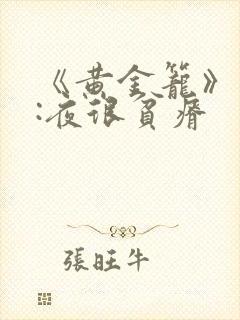 《黄金籠》
:夜很貧瘠
張旺牛